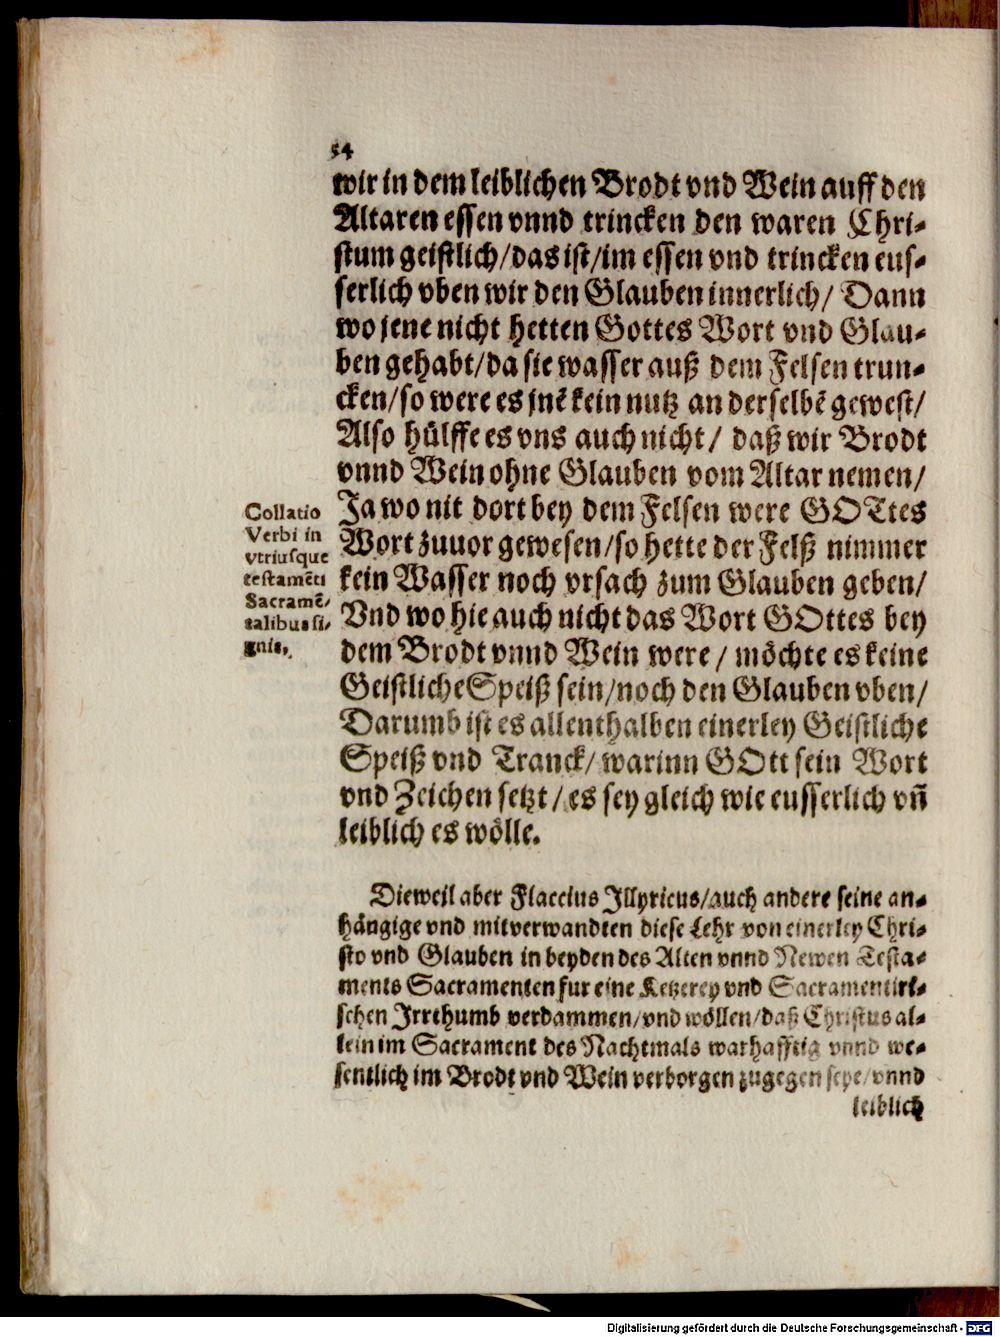 54
wir in dem leiblichen Brodt vnd Wein auff den
Altaren essen vnnd trincken den waren Chri-
stum geistlich/das ist/im essen vnd trincken eus-
serlich vben wir den Glauben innerlich/ Dann
wo jene nicht hetten Gottes Wort vnd Glau-
ben gehabt/da sie wasser auß dem Felsen trun-
cken/so were es jnē kein nutz an derselbē gewest/
Also hülffe es vns auch nicht/ daß wir Brodt
vnnd Wein ohne Glauben vom Altar nemen/
Ja wo nit dort bey dem Felsen were GOTtes
Wort zuuor gewesen/so hette der Felß nimmer
kein Wasser noch vrsach zum Glauben geben/
Vnd wo hie auch nicht das Wort GOttes bey
dem Brodt vnnd Wein were/ möchte es keine
Geistliche Speiß sein/noch den Glauben vben/
Darumb ist es allenthalben einerley Geistliche
Speiß vnd Tranck/ warinn GOtt sein Wort
vnd Zeichen setzt/ es sey gleich wie eusserlich vñ
leiblich es wölle.
Collatio
Verbi in
vtriusque
testamēti
Sacramē-
talibus si-
gnis.
Dieweil aber Flaccius Illyricus/auch andere seine an-
hängige vnd mitverwandten diese Lehr von einerley Chri-
sto vnd Glauben in beyden des Alten vnnd Newen Testa-
ments Sacramenten fur eine Ketzerey vnd Sacramentiri-
schen Irrthumb verdammen/vnd wöllen/daß Christus al-
lein im Sacrament des Nachtmals warhafftig vnnd we-
sentlich im Brodt vnd Wein verborgen zugegen seye/vnnd
leiblich
Digitalisierung gefördert durch die Deutsche Forschungsgemeinschaft - DFG